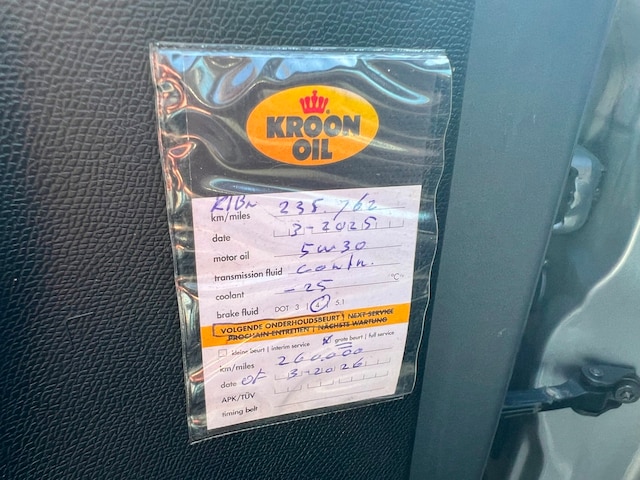 KROON
OIL
km/miles 235.762
date 3-2025
motor oil 5W30
transmission fluid contr.
coolant -25 °C
brake fluid DOT 3 | 4 | 5.1
VOLGENDE ONDERHOUDSBEURT | NEXT SERVICE
PROCHAIN ENTRETIEN | NÄCHSTE WARTUNG
kleine beurt | interim service x grote beurt | full service
km/miles 260.000
date of 3-2026
APK/TÜV
timing belt